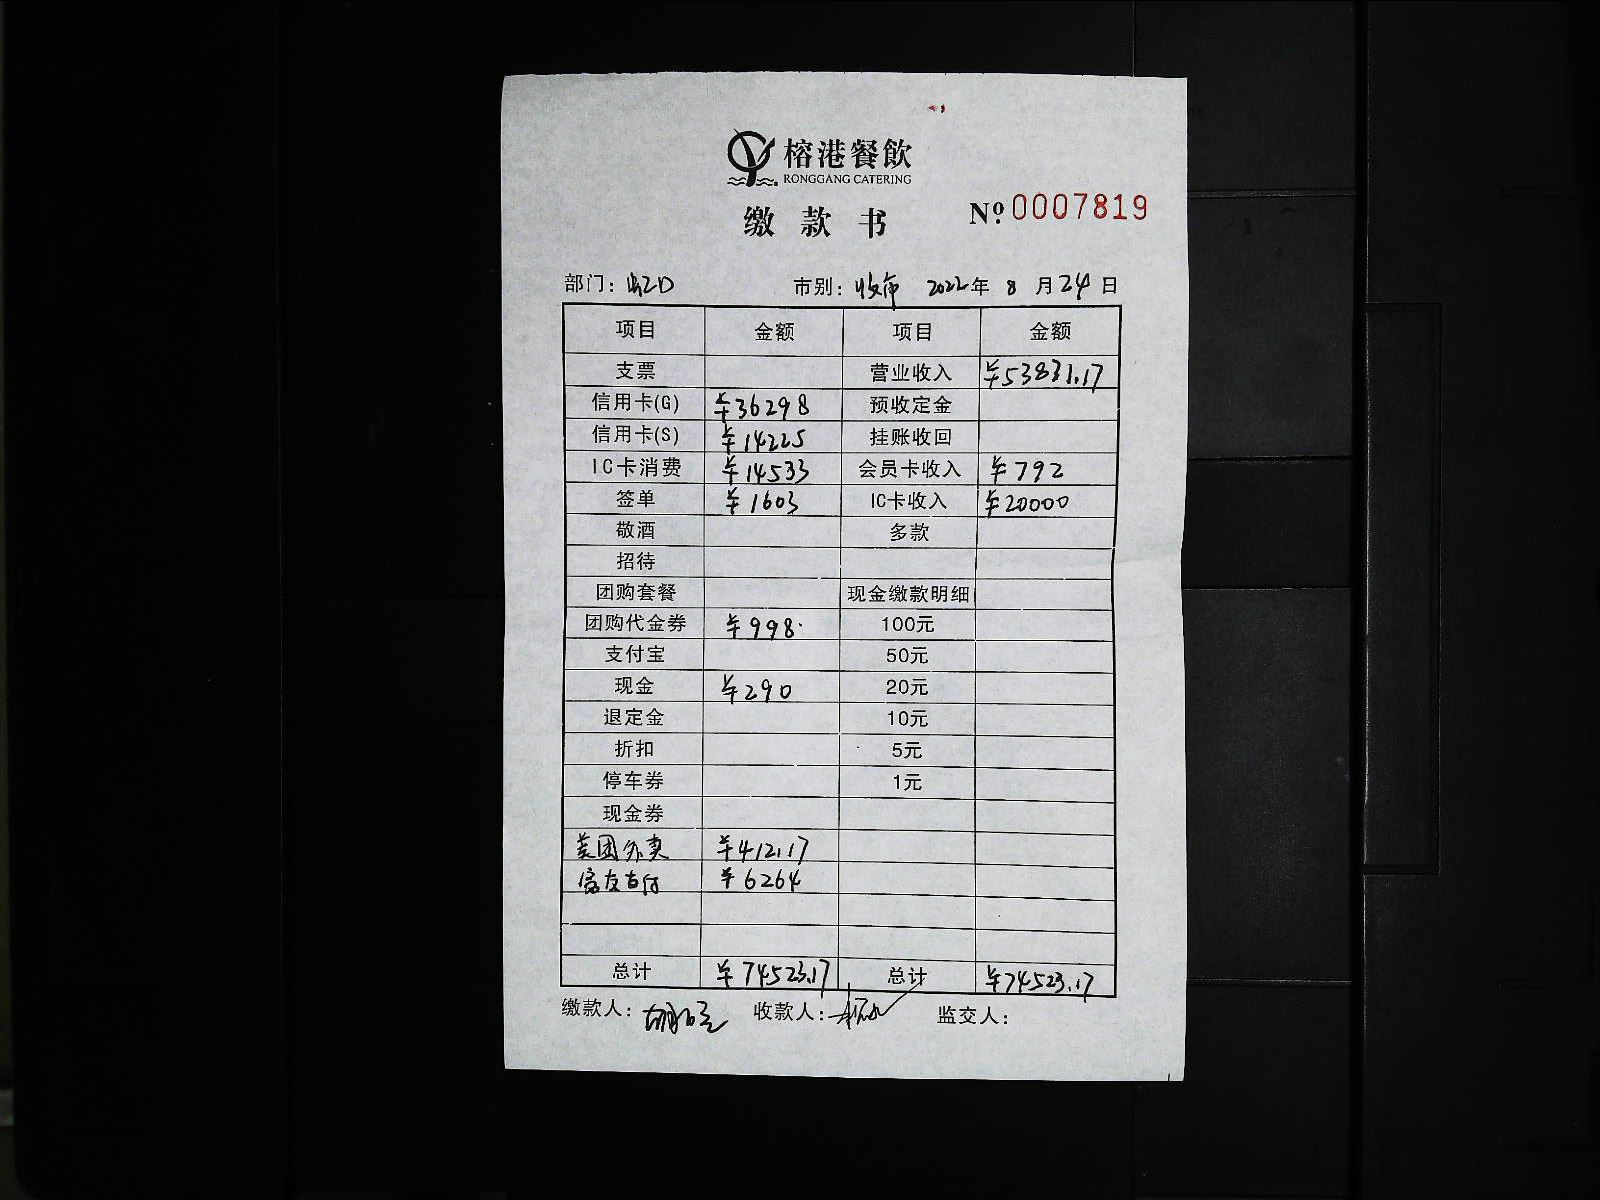 榕港餐飲
RONGGANG CATERING
缴款书 Nº 0007819
部门: 市别: 收市 2022年 8 月 24 日
项目 金额 项目 金额
支票 营业收入 ¥53831.17
信用卡(G) ¥36298 预收定金
信用卡(S) ¥14225 挂账收回
IC卡消费 ¥14533 会员卡收入 ¥792
签单 ¥1603 IC卡收入 ¥20000
敬酒 多款
招待
团购套餐 现金缴款明细
团购代金券 ¥998 100元
支付宝 50元
现金 ¥290 20元
退定金 10元
折扣 5元
停车券 1元
现金券
美团外卖 ¥412.17
支付 ¥6264
总计 ¥74523.17 总计 ¥74523.17
缴款人: 收款人: 监交人: